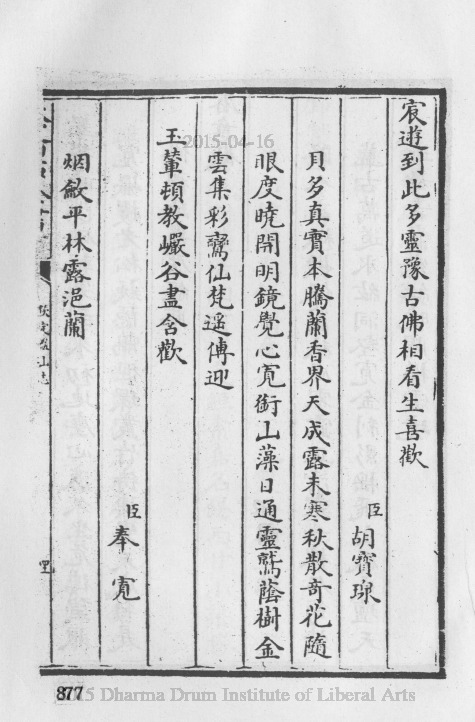 宸遊到此多靈豫古佛相看生喜歡
臣胡寶瑔
貝多真實本騰蘭香界天成露未寒秋散奇花隨
眼度曉開明鏡覺心寬銜山藻日通靈鷲蔭樹金
雲集彩鸞仙梵遥傳迎
玉輦頓教巗谷盡含歡
臣奉寬
烟斂平林露浥蘭
欽定盤山志
2015-04-16
877
5 Dharma Drum Institute of Liberal Arts